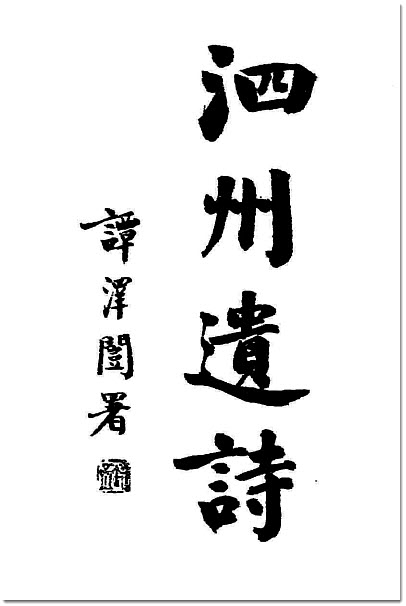 泗州遺詩
譚澤闓署